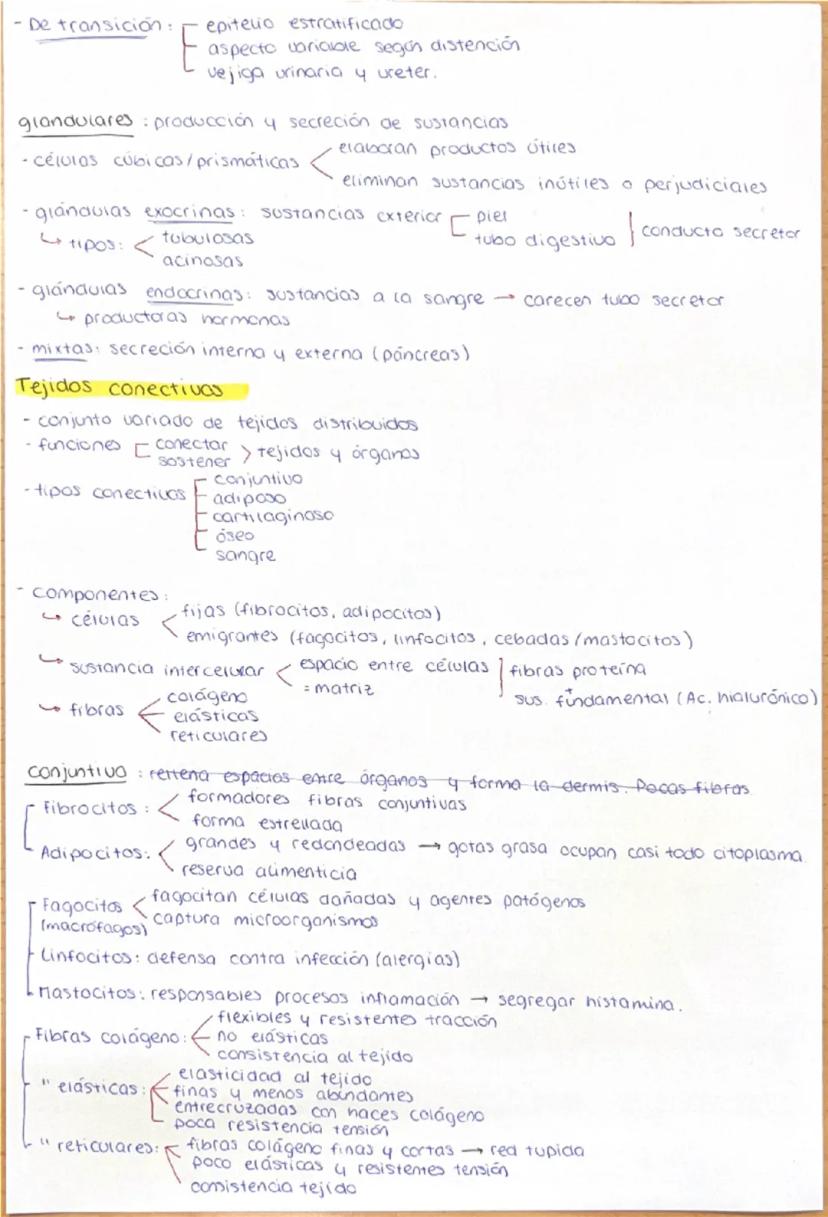 - De transición: epitelio estratificado
aspecto variable según distención
vejiga urinaria y ureter.
glandulares: producción y secreción de sustancias
- células cúbicas/prismáticas elaboran productos útiles
eliminan sustancias inútiles o perjudiciales
- glándulas exocrinas: sustancias exterior piel
tubo digestivo conducto secretor
↳ tipos: tubulosas
acinosas
- glándulas endocrinas: sustancias a la sangre → carecen tubo secretor
↳ productoras hormonas
- mixtas: secreción interna y externa (páncreas)
Tejidos conectivos
- conjunto variado de tejidos distribuidos
- funciones conectar
sostener > tejidos y órganos
- tipos conectivos conjuntivo
adiposo
cartilaginoso
óseo
sangre
- componentes:
↳ células fijas (fibrocitos, adipocitos)
emigrantes (fagocitos, linfocitos, cebadas/mastocitos)
↳ sustancia intercelular espacio entre células fibras proteína
= matriz +
sus. fundamental (Ac. hialurónico)
↳ fibras colágeno
elásticas
reticulares
conjuntivo: rellena espacios entre órganos y forma la dermis. Pocas fibras
Fibrocitos: formadores fibras conjuntivas
forma estrellada
Adipocitos: grandes y redondeadas → gotas grasa ocupan casi todo citoplasma.
reserva alimenticia
Fagocitos fagocitan células dañadas y agentes patógenos
(macrófagos) captura microorganismos
Linfocitos: defensa contra infección (alergias)
Mastocitos: responsables procesos inflamación → segregar histamina.
Fibras colágeno: flexibles y resistentes tracción
no elásticas
consistencia al tejido
" elásticas: elasticidad al tejido
finas y menos abundantes
entrecruzadas con haces colágeno
poca resistencia tensión
" reticulares: fibras colágeno finas y cortas → red tupida
poco elásticas y resistentes tensión
consistencia tejido